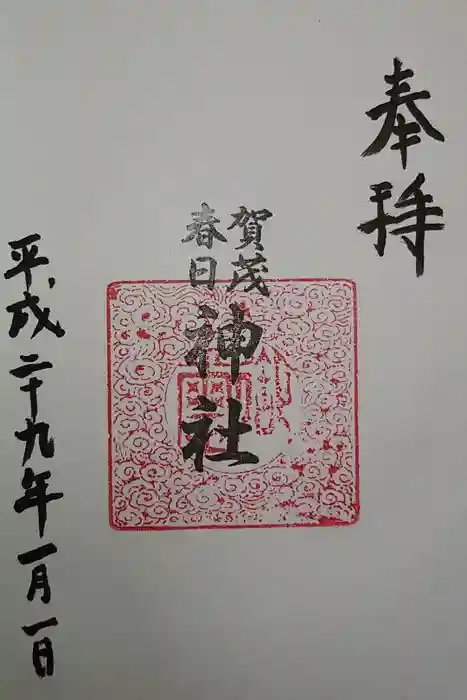 奉拝
賀茂
春日
神社
平成二十九年一月一日